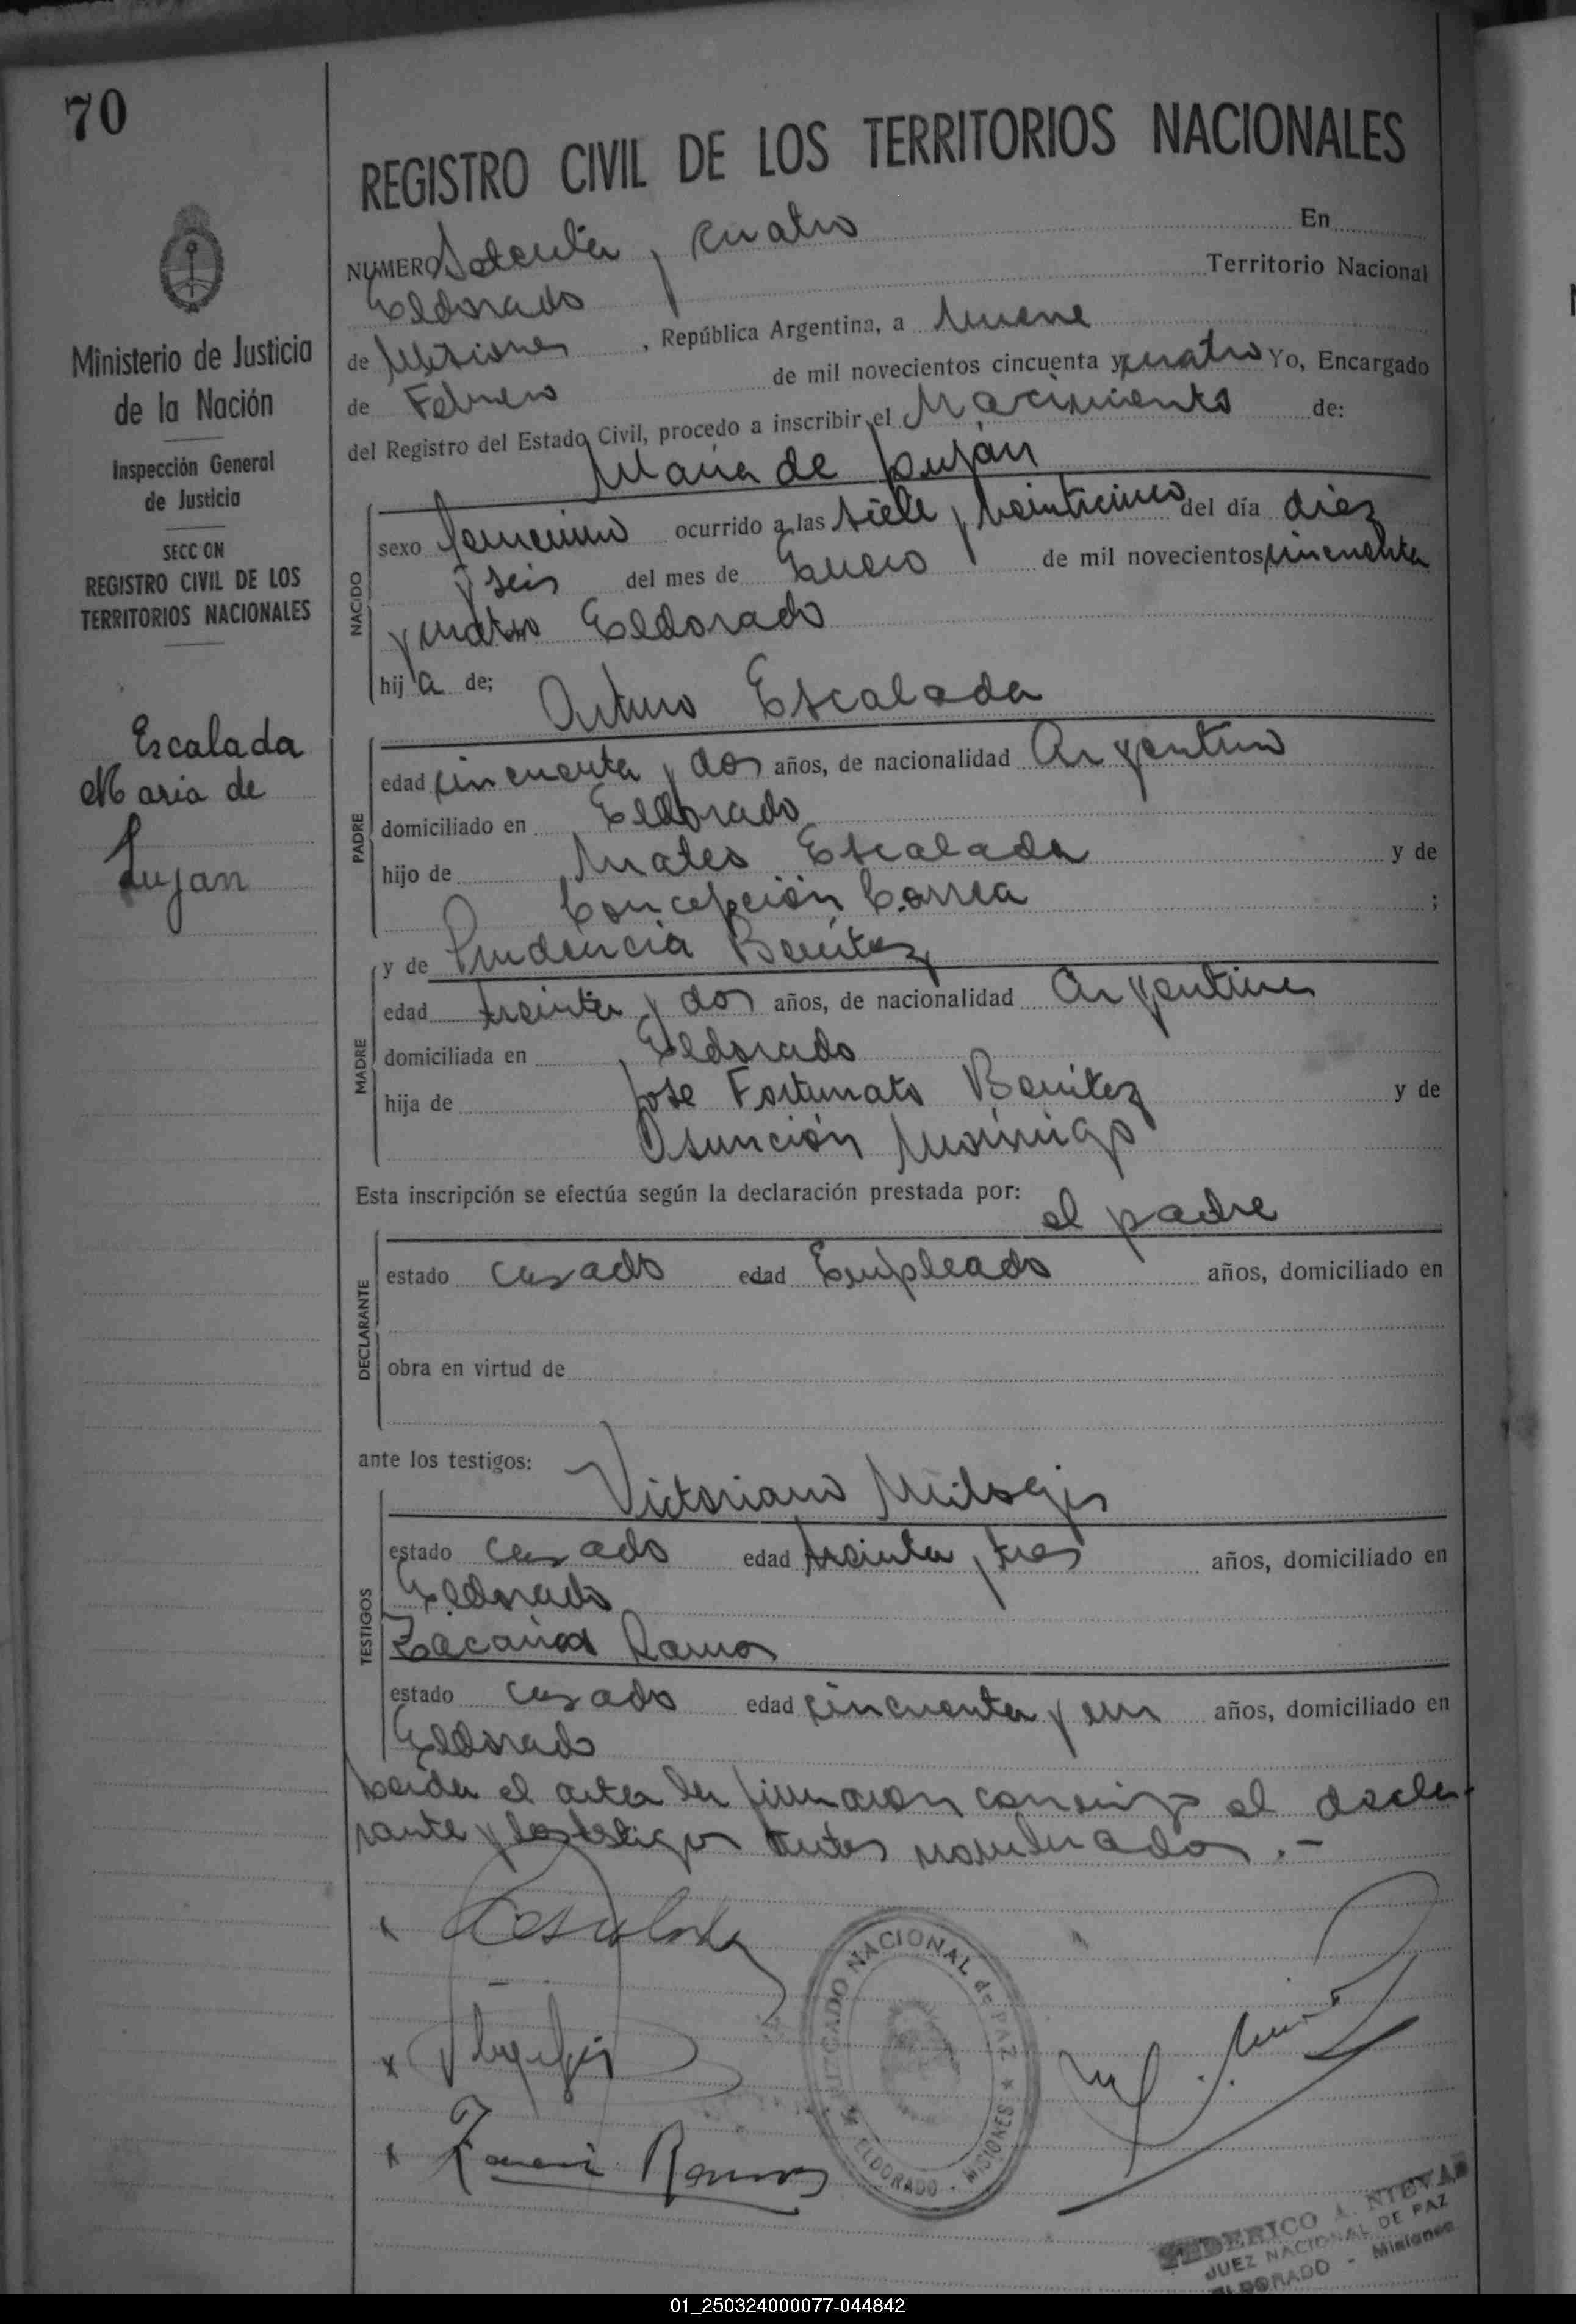 70
REGISTRO CIVIL DE LOS TERRITORIOS NACIONALES
NUMERO Setenta y cuatro En
Eldorado Territorio Nacional
de Misiones, República Argentina, a nueve
de Febrero de mil novecientos cincuenta y cuatro Yo, Encargado
del Registro del Estado Civil, procedo a inscribir el Nacimiento de:
María de Luján
NACIDO
sexo femenino ocurrido a las siete y veinticinco del día diez
y seis del mes de Enero de mil novecientos cincuenta
y cuatro Eldorado
hija de;
Arturo Escalada
PADRE
edad cincuenta y dos años, de nacionalidad Argentino
domiciliado en Eldorado
hijo de Mateo Escalada y de
Concepción Correa ;
MADRE
y de Prudencia Benítez
edad treinta y dos años, de nacionalidad Argentina
domiciliada en Eldorado
hija de José Fortunato Benítez y de
Asunción Morínigo
Esta inscripción se efectúa según la declaración prestada por:
el padre
DECLARANTE
estado casado edad Empleado años, domiciliado en
obra en virtud de
ante los testigos:
Victoriano
TESTIGOS
estado casado edad treinta y tres años, domiciliado en
Eldorado
Zacarías Ramos
estado casado edad cincuenta y un años, domiciliado en
Eldorado
Leída el acta la firmaron conmigo el decla-
rante y los testigos antes nombrados.-
Escalada
Ramos
JUZGADO NACIONAL de PAZ
ELDORADO - MISIONES
FEDERICO A. NIEVAS
JUEZ NACIONAL DE PAZ
ELDORADO - Misiones
Ministerio de Justicia
de la Nación
Inspección General
de Justicia
SECCION
REGISTRO CIVIL DE LOS
TERRITORIOS NACIONALES
Escalada
Maria de
Lujan
01_250324000077-044842